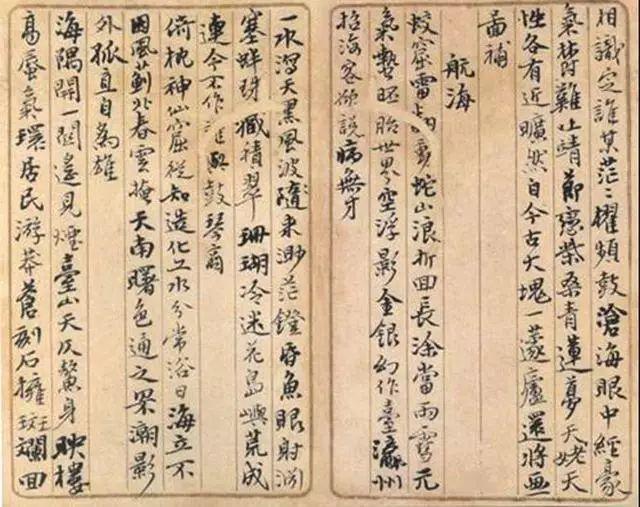 相識定誰某茫〻櫂頻鼓滄海眼中經豪
氣難止靖節戀柴桑青蓮夢天姥天
性各有近曠然自今古大塊一蘧廬還將無
啚補
航海
蛟窟雷蛇山浪折回長塗當雨雪元
氣勢胚胎世界空浮影金銀幻作臺瀛州
招海客欲說病無才
一水瀉天黑風波隨來渺茫鐙昏魚眼射淵
塞蚌珠藏積翠珊瑚冷迷花島嶼荒成
連今不作誰鼓琴商
倚枕神仙窟從知造化工水分常浴日海立不
因風薊北春雲掩天南曙色通之罘潮影
外孤直自為雄
海隅開一關遙見煙臺山天仄鰲身映樓
高蜃氣環居民游莽蒼刻石擁斑斕回